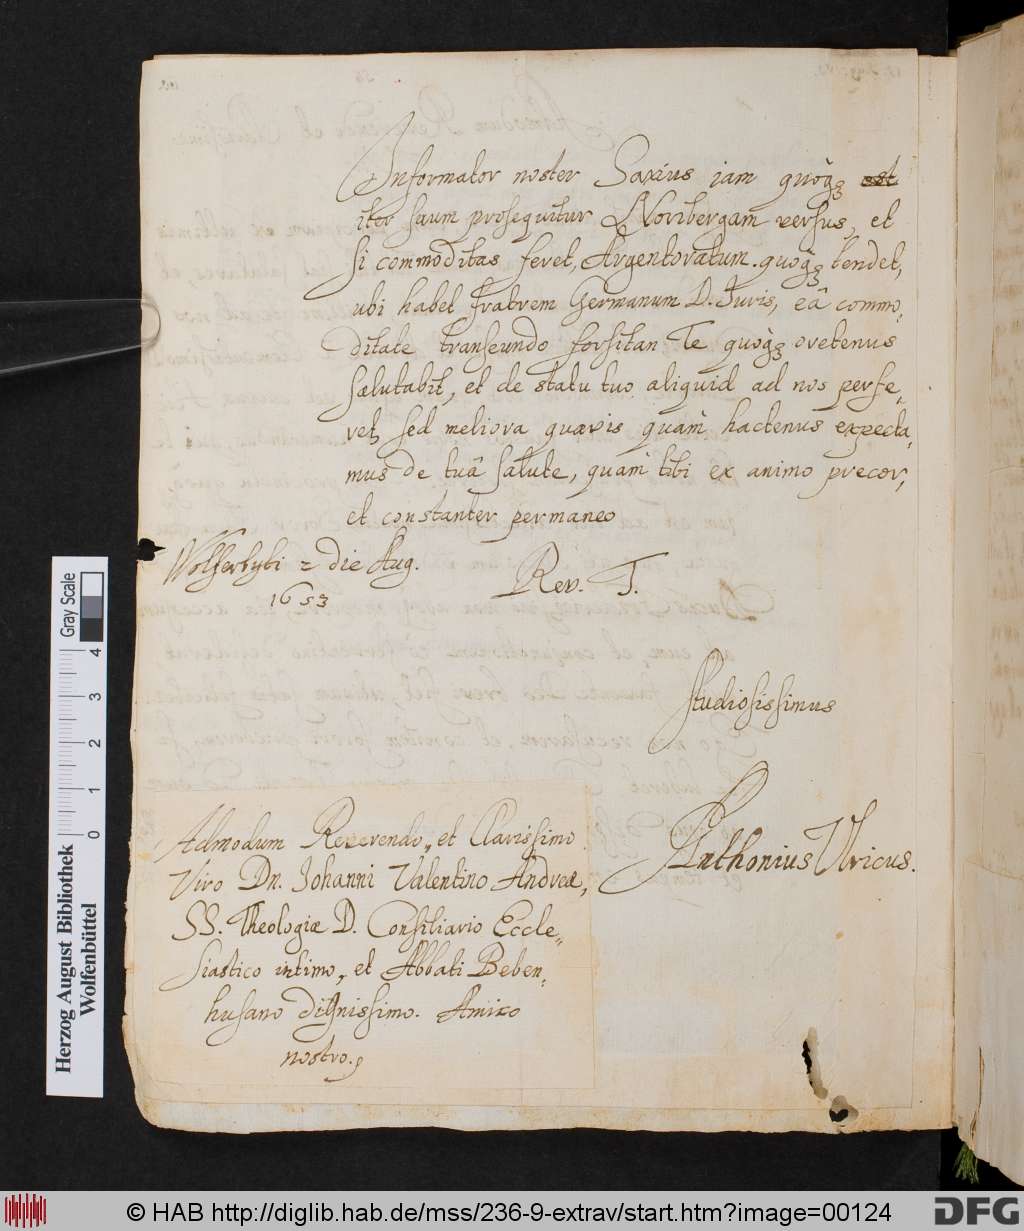 Informator noster Saxius jam quoq̀ʒ est
iter suum prosequitur Noribergam versus, et
si commoditas feret, Argentoratum quoq̀ʒ tendet,
ubi habet fratrem Germanum D. Juris, eâ commo„
ditate transeundo forsitan Te quoq̀ʒ oretenus
salutabit, et de statu tuo aliquid ad nos perfe„
ret, sed meliora quævis quàm hactenus expecta„
mus de tuâ salute, quam tibi ex animo precor,
et constanter permaneo
Wolferbyti 2 die Aug.
1653
Rev. T.
Studiosissimus
Anthonius Ulricus.
Admodum Reverendo, et Clarissimo
Viro Dn. Johanni Valentino Andreæ,
SS. Theologiæ D. Consiliario Eccle„
siastico intimo, et Abbati Beben„
husano dignissimo. Amico
nostro.
Herzog August Bibliothek
Wolfenbüttel
Gray Scale
0 1 2 3 4
© HAB http://diglib.hab.de/mss/236-9-extrav/start.htm?image=00124
DFG